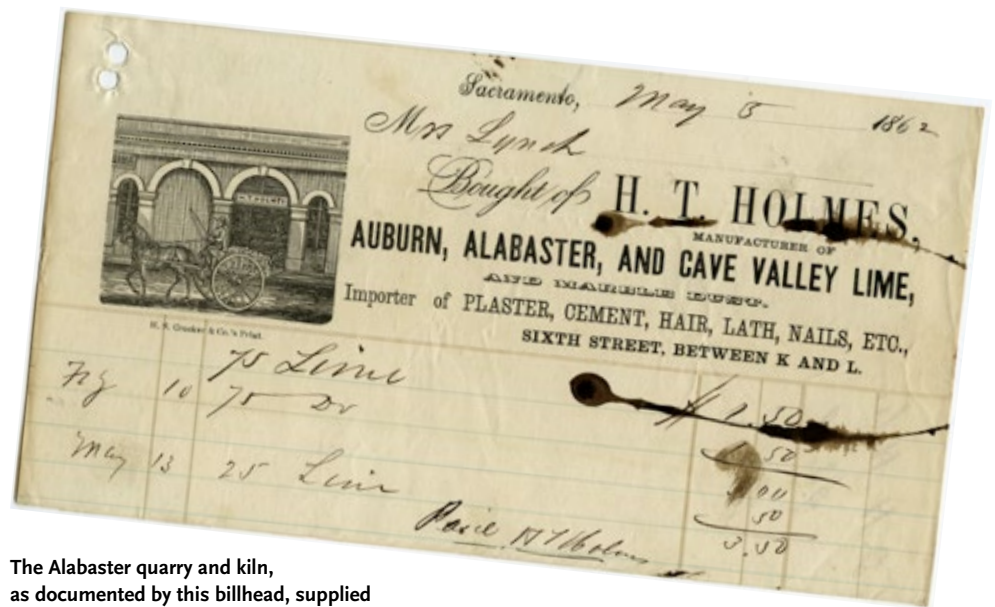 Sacramento, May 5 1862
Mrs Lynch
Bought of H. T. HOLMES,
MANUFACTURER OF
AUBURN, ALABASTER, AND CAVE VALLEY LIME,
AND MARBLE DUST.
Importer of PLASTER, CEMENT, HAIR, LATH, NAILS, ETC.,
SIXTH STREET, BETWEEN K AND L.
H. T. HOLMES
H. S. Crocker & Co.'s Print.
75 Lime $1.50
10 75 Do 50
00
May 13 25 Lime 50
3.50
H T Holmes
The Alabaster quarry and kiln,
as documented by this billhead, supplied